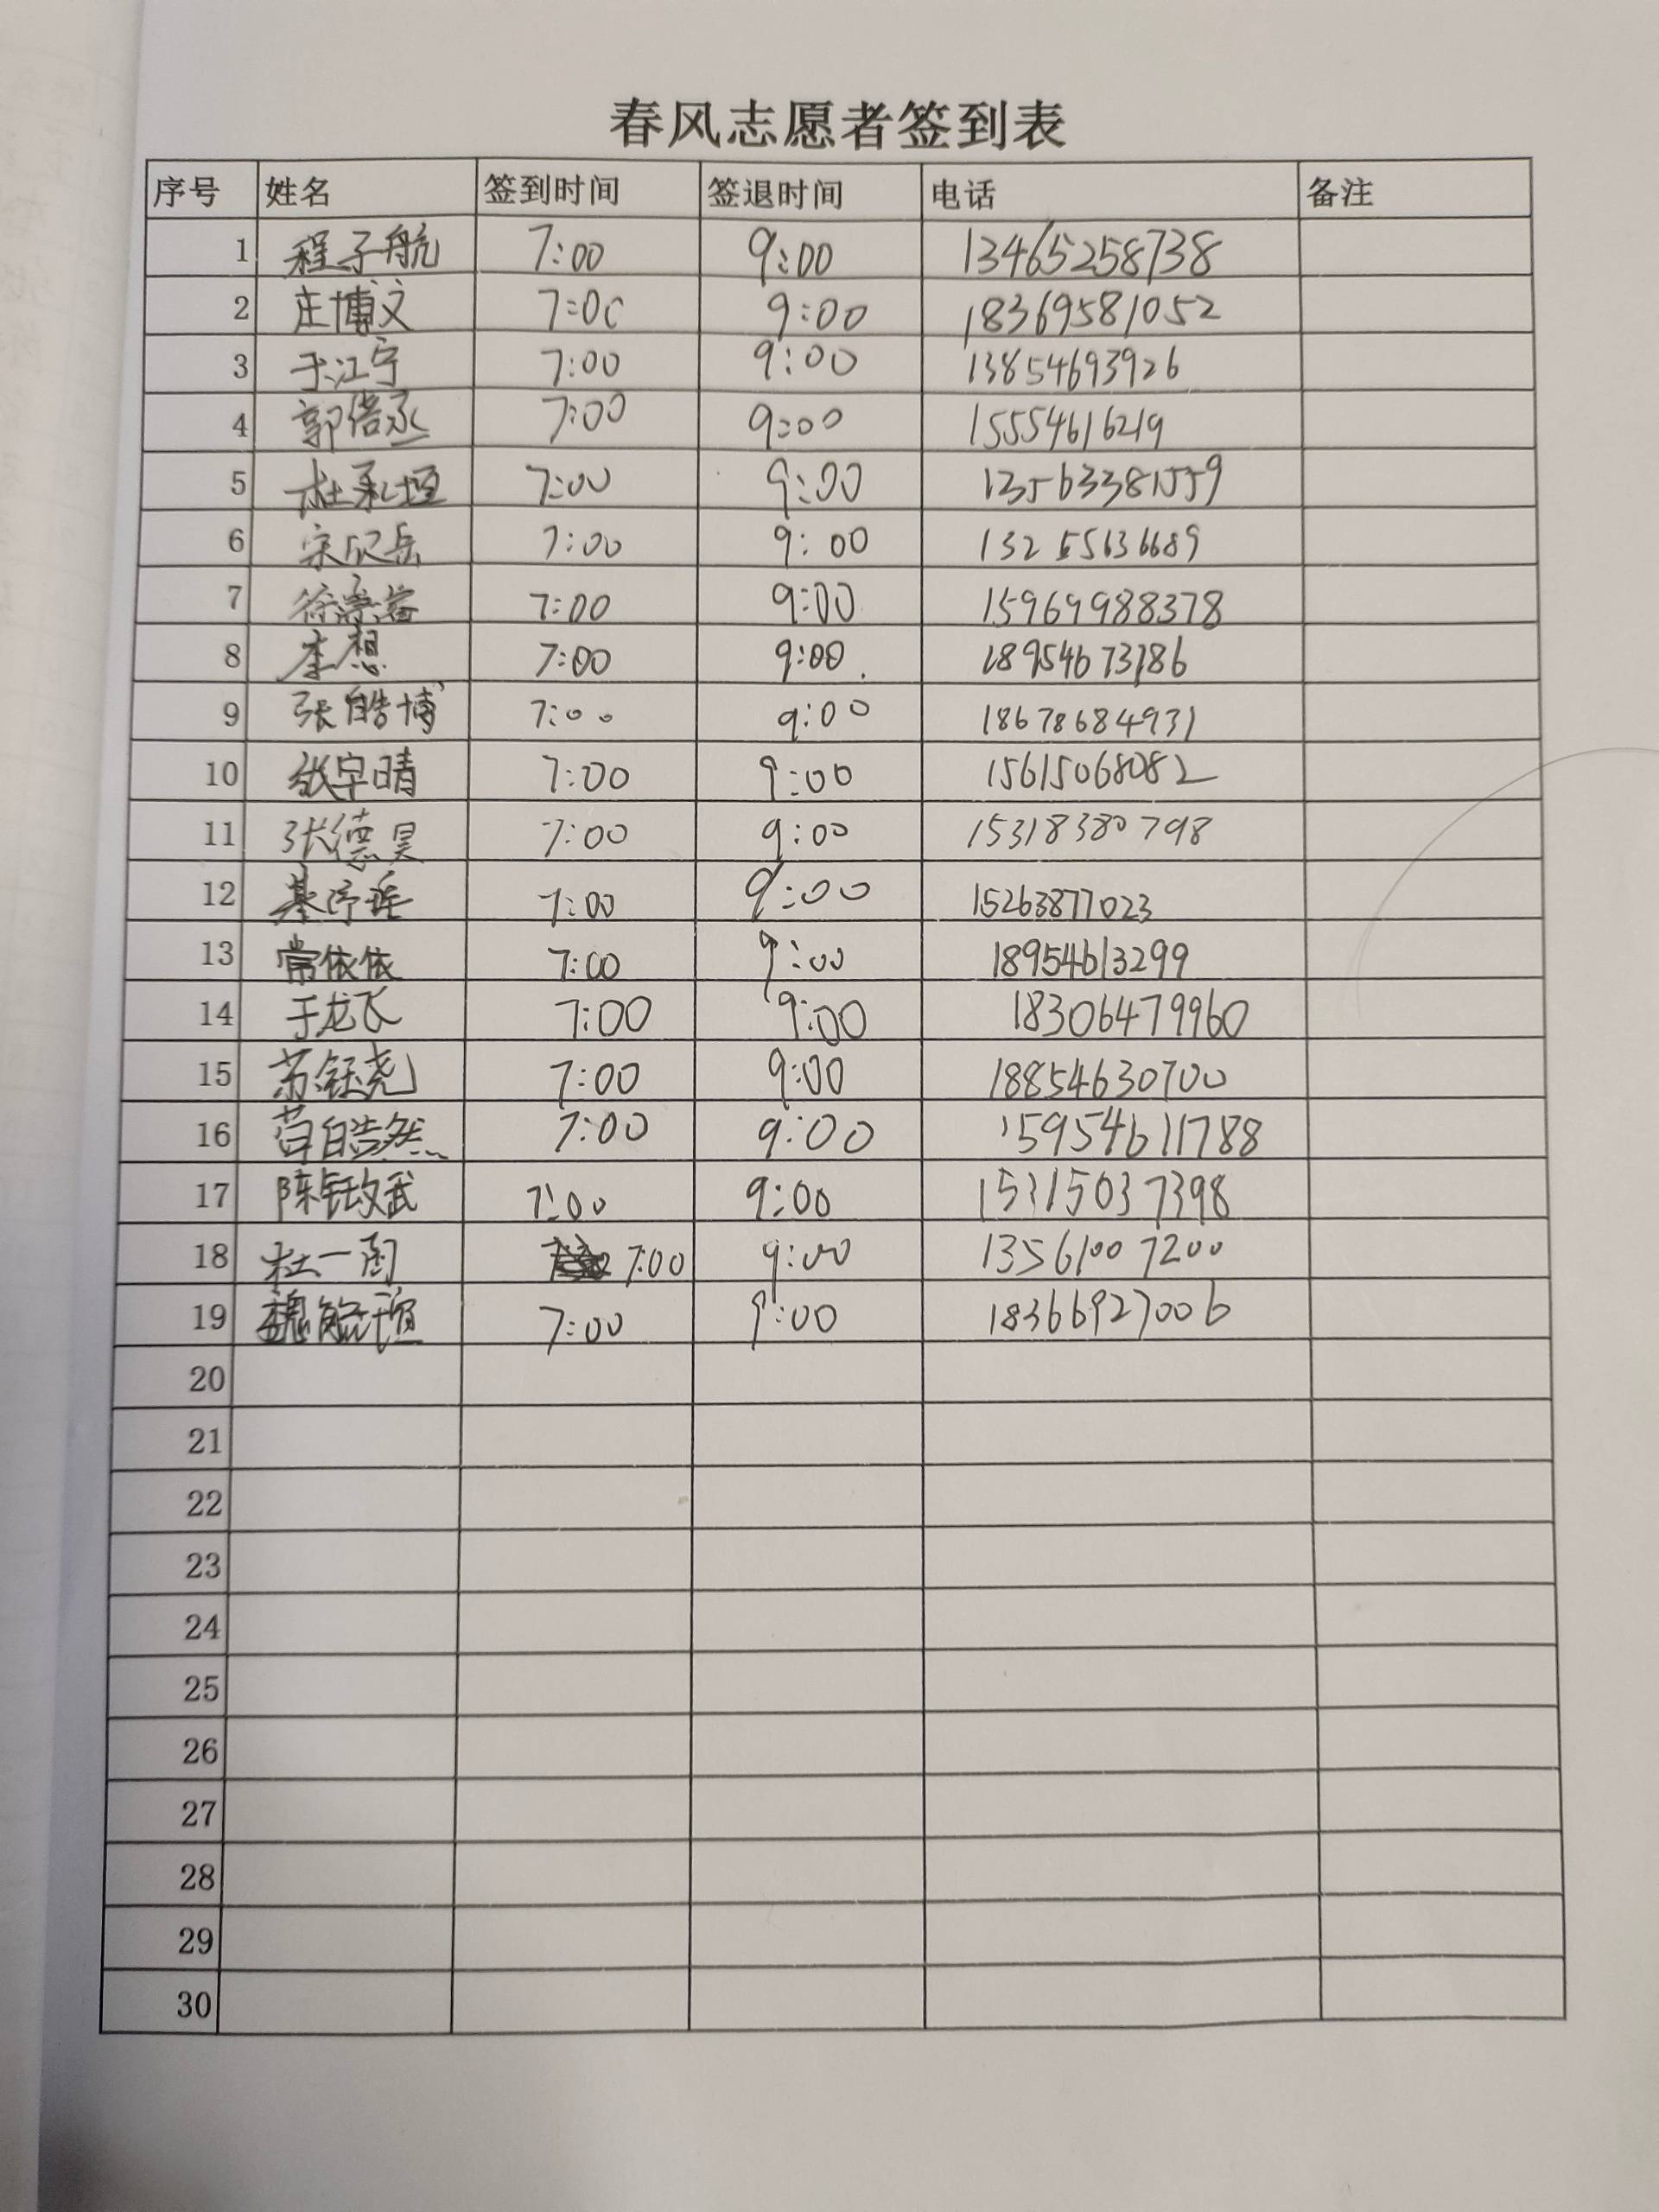 春风志愿者签到表
序号 姓名 签到时间 签退时间 电话 备注
1 程子航 7:00 9:00 13465258738
2 庄博文 7:00 9:00 18369581052
3 于江宁 7:00 9:00 13854693926
4 郭倍丞 7:00 9:00 15554616219
5 杜承垣 7:00 9:00 13563381559
6 宋欣岳 7:00 9:00 13255636689
7 徐 7:00 9:00 15969988378
8 李想 7:00 9:00 18954673186
9 张皓博 7:00 9:00 18678684931
10 张宇晴 7:00 9:00 15615068082
11 张德昊 7:00 9:00 15318380798
12 7:00 9:00 15263877023
13 常依依 7:00 9:00 18954613299
14 于龙飞 7:00 9:00 18306479960
15 苏钰尧 7:00 9:00 18854630700
16 苩自浩然 7:00 9:00 15954611788
17 陈钰玟武 7:00 9:00 15315037398
18 杜一 7:00 9:00 13561007200
19 魏毓 7:00 9:00 18366927006
20
21
22
23
24
25
26
27
28
29
30